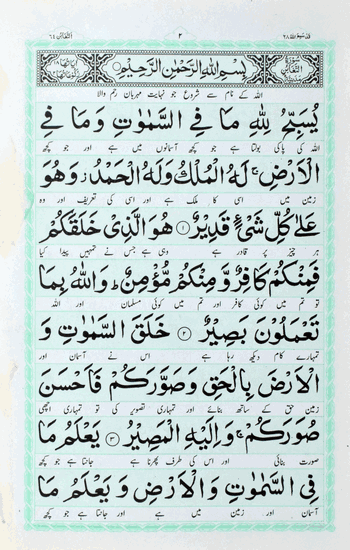 قد سمع الله ۲۸ ۲ التغابن ٦٤
سورة التغابن بسم الله الرحمن الرحيم
اللہ کے نام سے شروع جو نہایت مہربان رحم والا
يُسَبِّحُ لِلّٰهِ مَا فِي السَّمٰوٰتِ وَمَا فِي
اللہ کی پاکی بولتا ہے جو کچھ آسمانوں میں ہے اور جو کچھ
الْاَرْضِ ۚ لَهُ الْمُلْكُ وَلَهُ الْحَمْدُ ؗ وَهُوَ
زمین میں اسی کا ملک ہے اور اسی کی تعریف اور وہ
عَلٰى كُلِّ شَيْءٍ قَدِيْرٌ ﴿۱﴾ هُوَ الَّذِيْ خَلَقَكُمْ
ہر چیز پر قادر ہے وہی ہے جس نے تمہیں پیدا کیا
فَمِنْكُمْ كَافِرٌ وَّمِنْكُمْ مُّؤْمِنٌ ؕ وَاللّٰهُ بِمَا
تو تم میں کوئی کافر اور تم میں کوئی مسلمان اور اللہ
تَعْمَلُوْنَ بَصِيْرٌ ﴿۲﴾ خَلَقَ السَّمٰوٰتِ وَ
تمہارے کام دیکھ رہا ہے اس نے آسمان اور
الْاَرْضَ بِالْحَقِّ وَصَوَّرَكُمْ فَاَحْسَنَ
زمین حق کے ساتھ بنائے اور تمہاری تصویر کی تو تمہاری اچھی
صُوَرَكُمْ ۚ وَاِلَيْهِ الْمَصِيْرُ ﴿۳﴾ يَعْلَمُ مَا
صورت بنائی اور اسی کی طرف پھرنا ہے جانتا ہے جو کچھ
فِي السَّمٰوٰتِ وَالْاَرْضِ وَيَعْلَمُ مَا
آسمان اور زمین میں ہے اور جانتا ہے جو کچھ